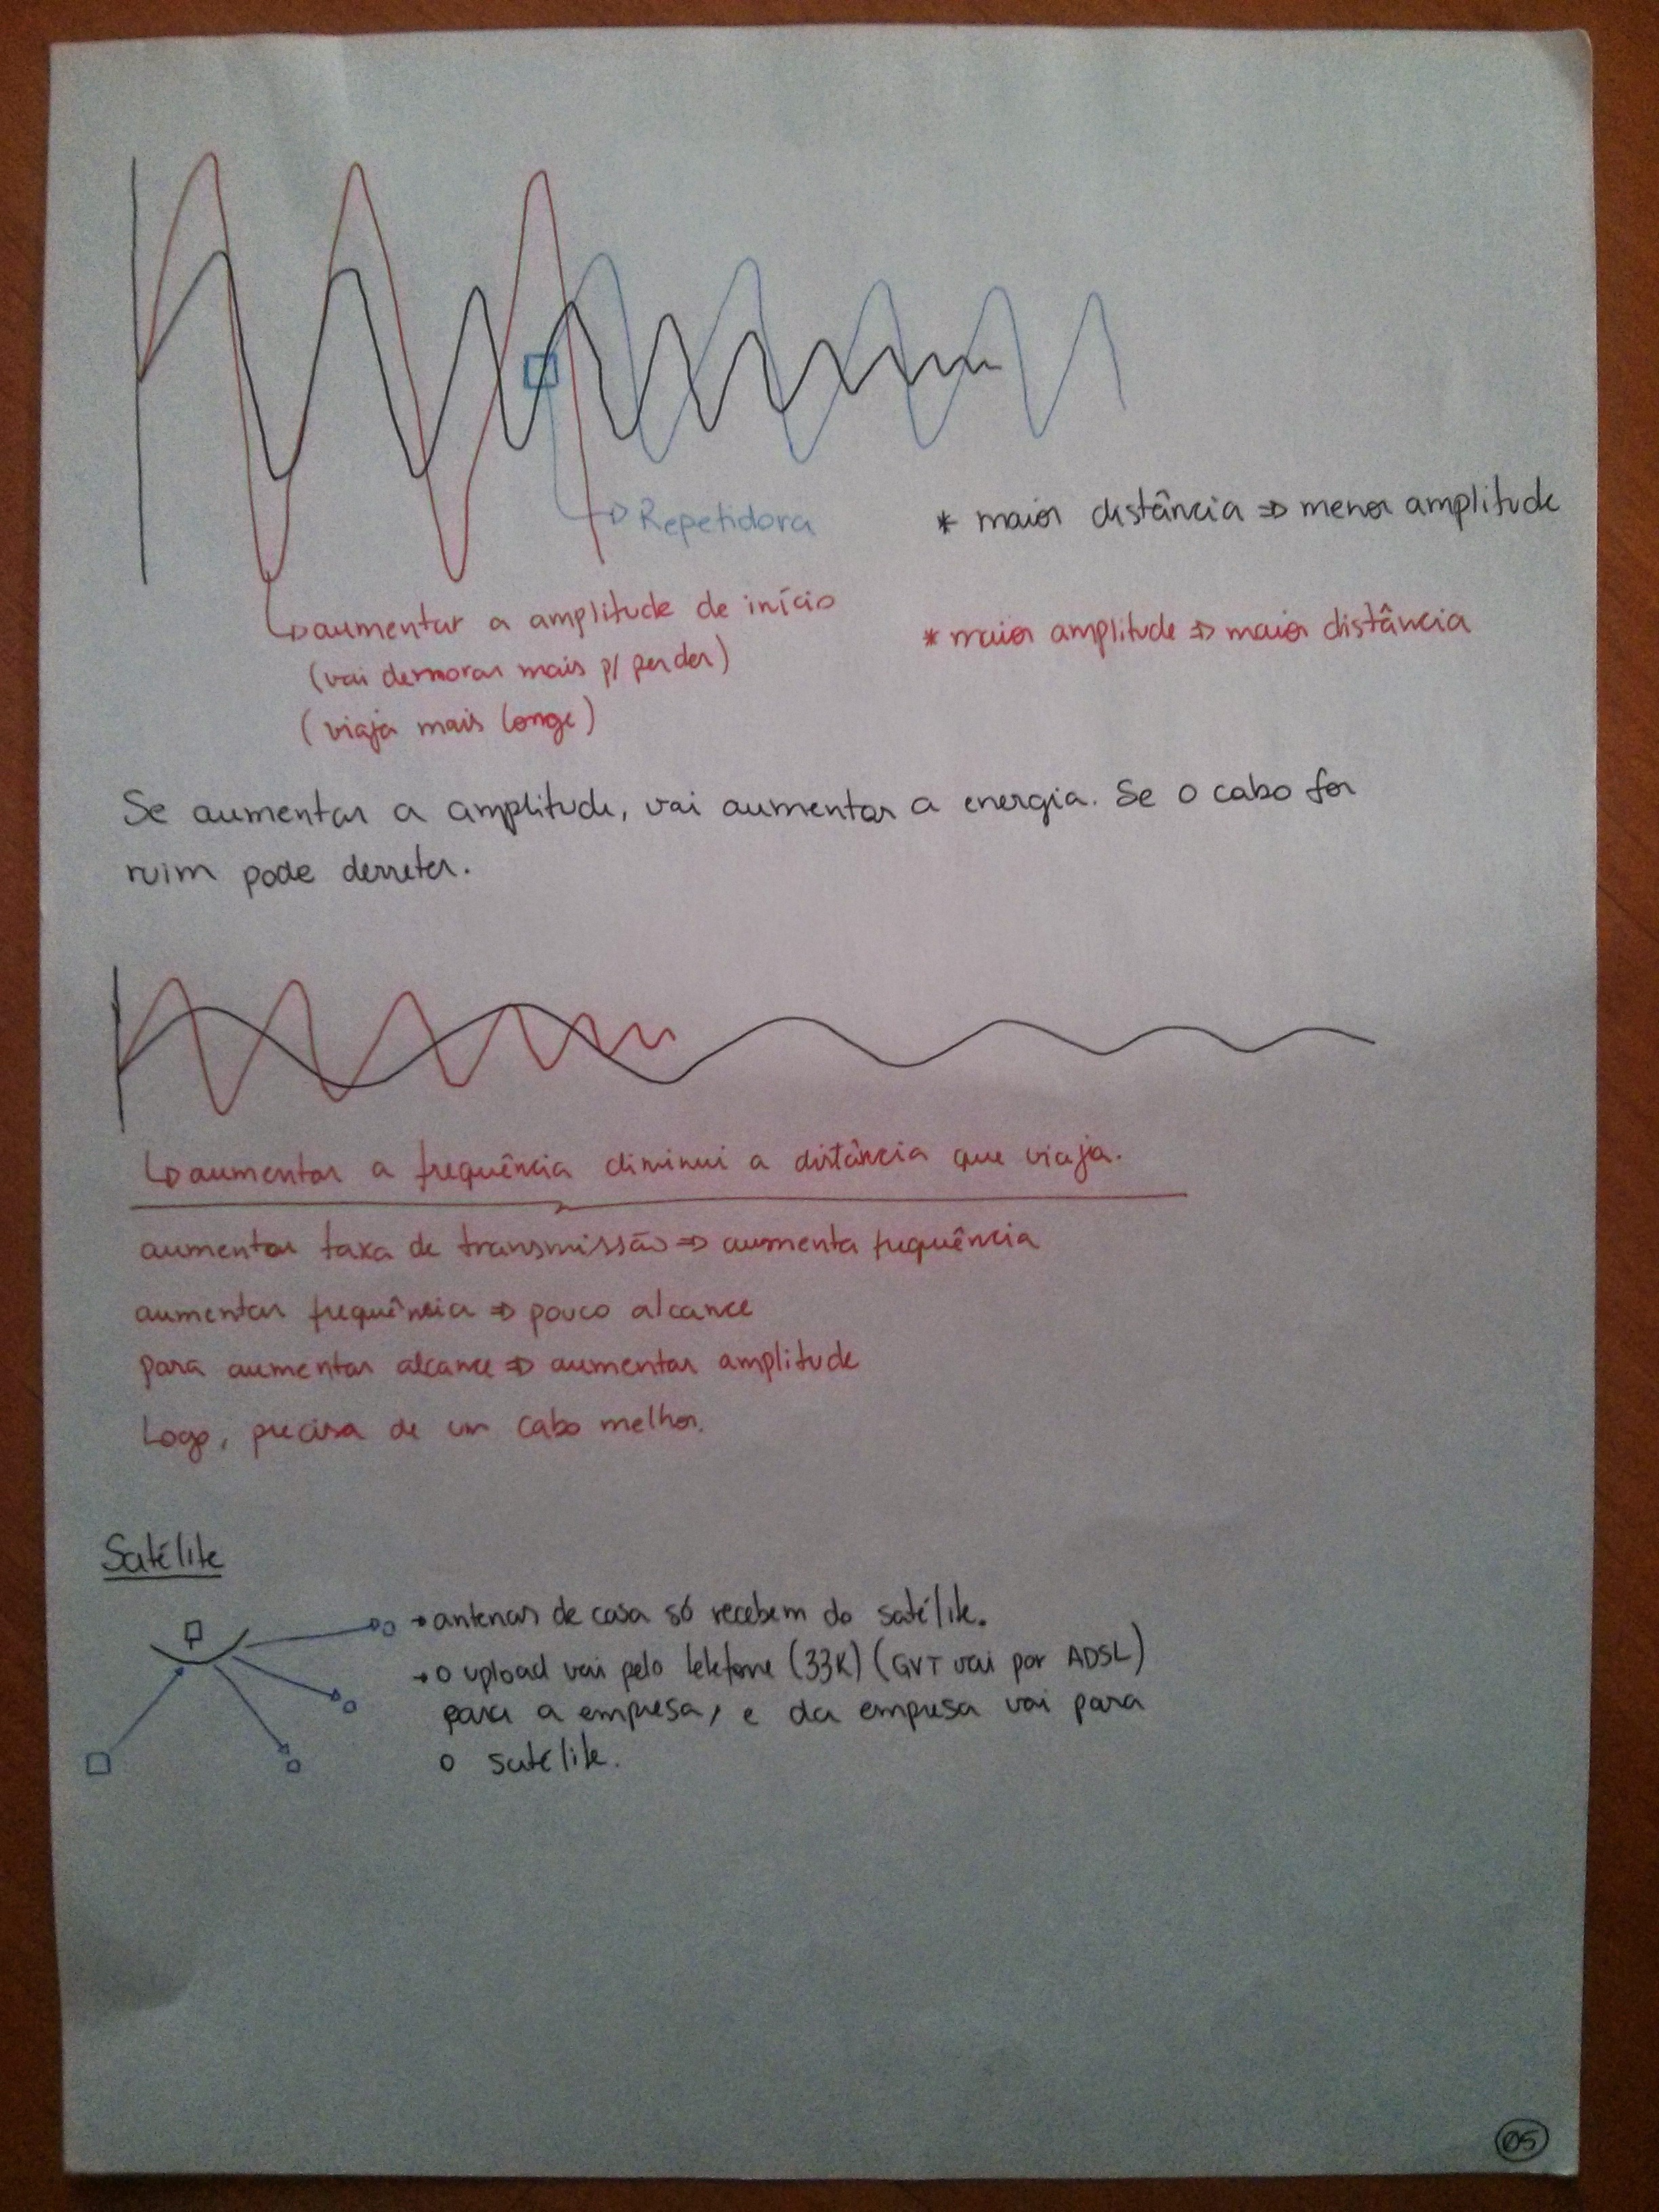 Repetidora
* maior distância ⇒ menor amplitude
↳ aumentar a amplitude de início
(vai demorar mais p/ perder)
(viaja mais longe)
* maior amplitude ⇒ maior distância
Se aumentar a amplitude, vai aumentar a energia. Se o cabo for
ruim pode derreter.
↳ aumentar a frequência diminui a distância que viaja.
aumentar taxa de transmissão ⇒ aumenta frequência
aumentar frequência ⇒ pouco alcance
para aumentar alcance ⇒ aumentar amplitude
Logo, precisa de um cabo melhor.
Satélite
→ antenas de casa só recebem do satélite.
→ o upload vai pelo telefone (33K) (GVT vai por ADSL)
para a empresa, e da empresa vai para
o satélite.
05